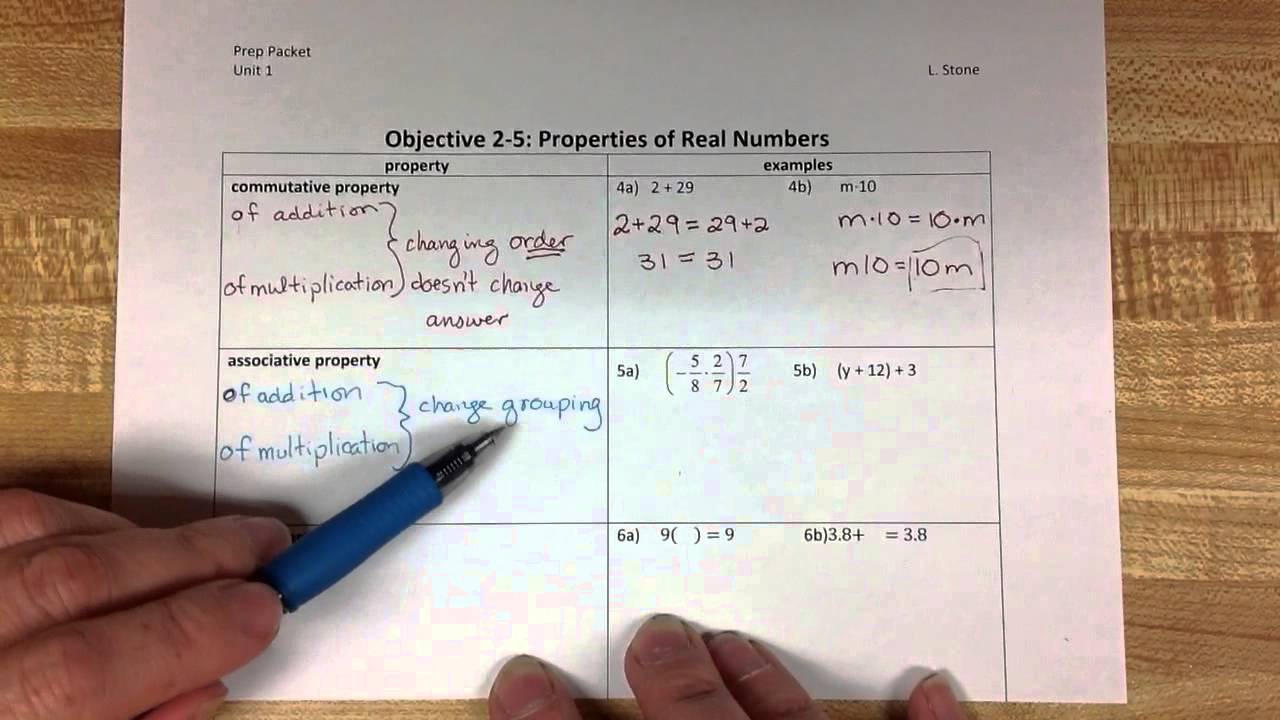 Prep Packet
Unit 1
L. Stone
Objective 2-5: Properties of Real Numbers
property
examples
commutative property
of addition
of multiplication
changing order
doesn't change
answer
4a) 2 + 29
2+29 = 29+2
31 = 31
4b) m·10
m·10 = 10·m
m10 = 10m
associative property
of addition
of multiplication
change grouping
5a) (-5/8 · 2/7) 7/2
5b) (y + 12) + 3
6a) 9( ) = 9
6b)3.8+ = 3.8